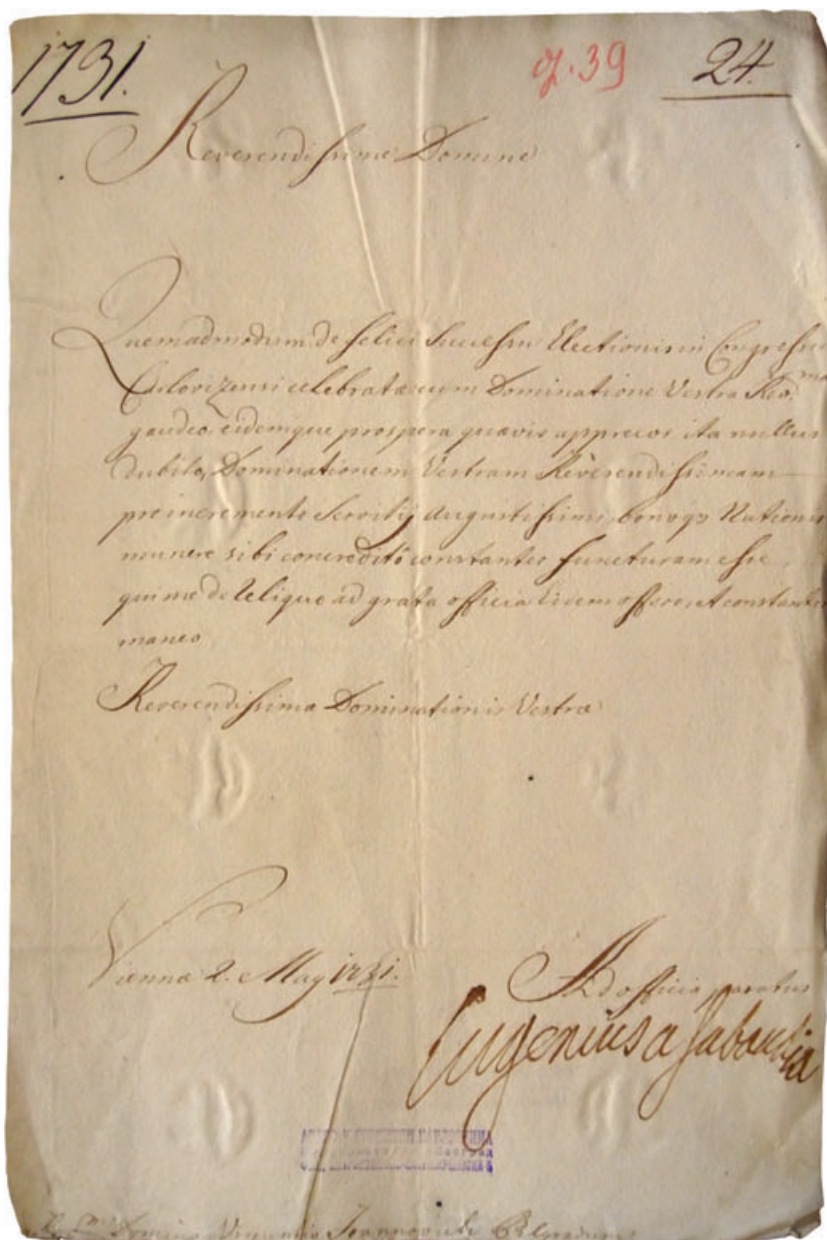 1731. 39 24.
Reverendissime Domine
Quemadmodum de felici Successu Electionis in Congressu
Carlovizensi celebratæ cum Dominatione Vestra Rev.ma
gaudeo, eidemque prospera quævis apprecor ita nullus
dubito, Dominationem Vestram Reverendissimam
pro incremento Servitij Augustissimi, bonoqz Nationis
munere sibi concredito constanter functuram esse,
qui me de reliquo ad grata officia eidem offero et constanter
maneo
Reverendissimæ Dominationis Vestræ
Viennæ 2. May 1731.
Ad officia paratus
Eugenius a Sabaudia
Domino Vincentio Joannovich